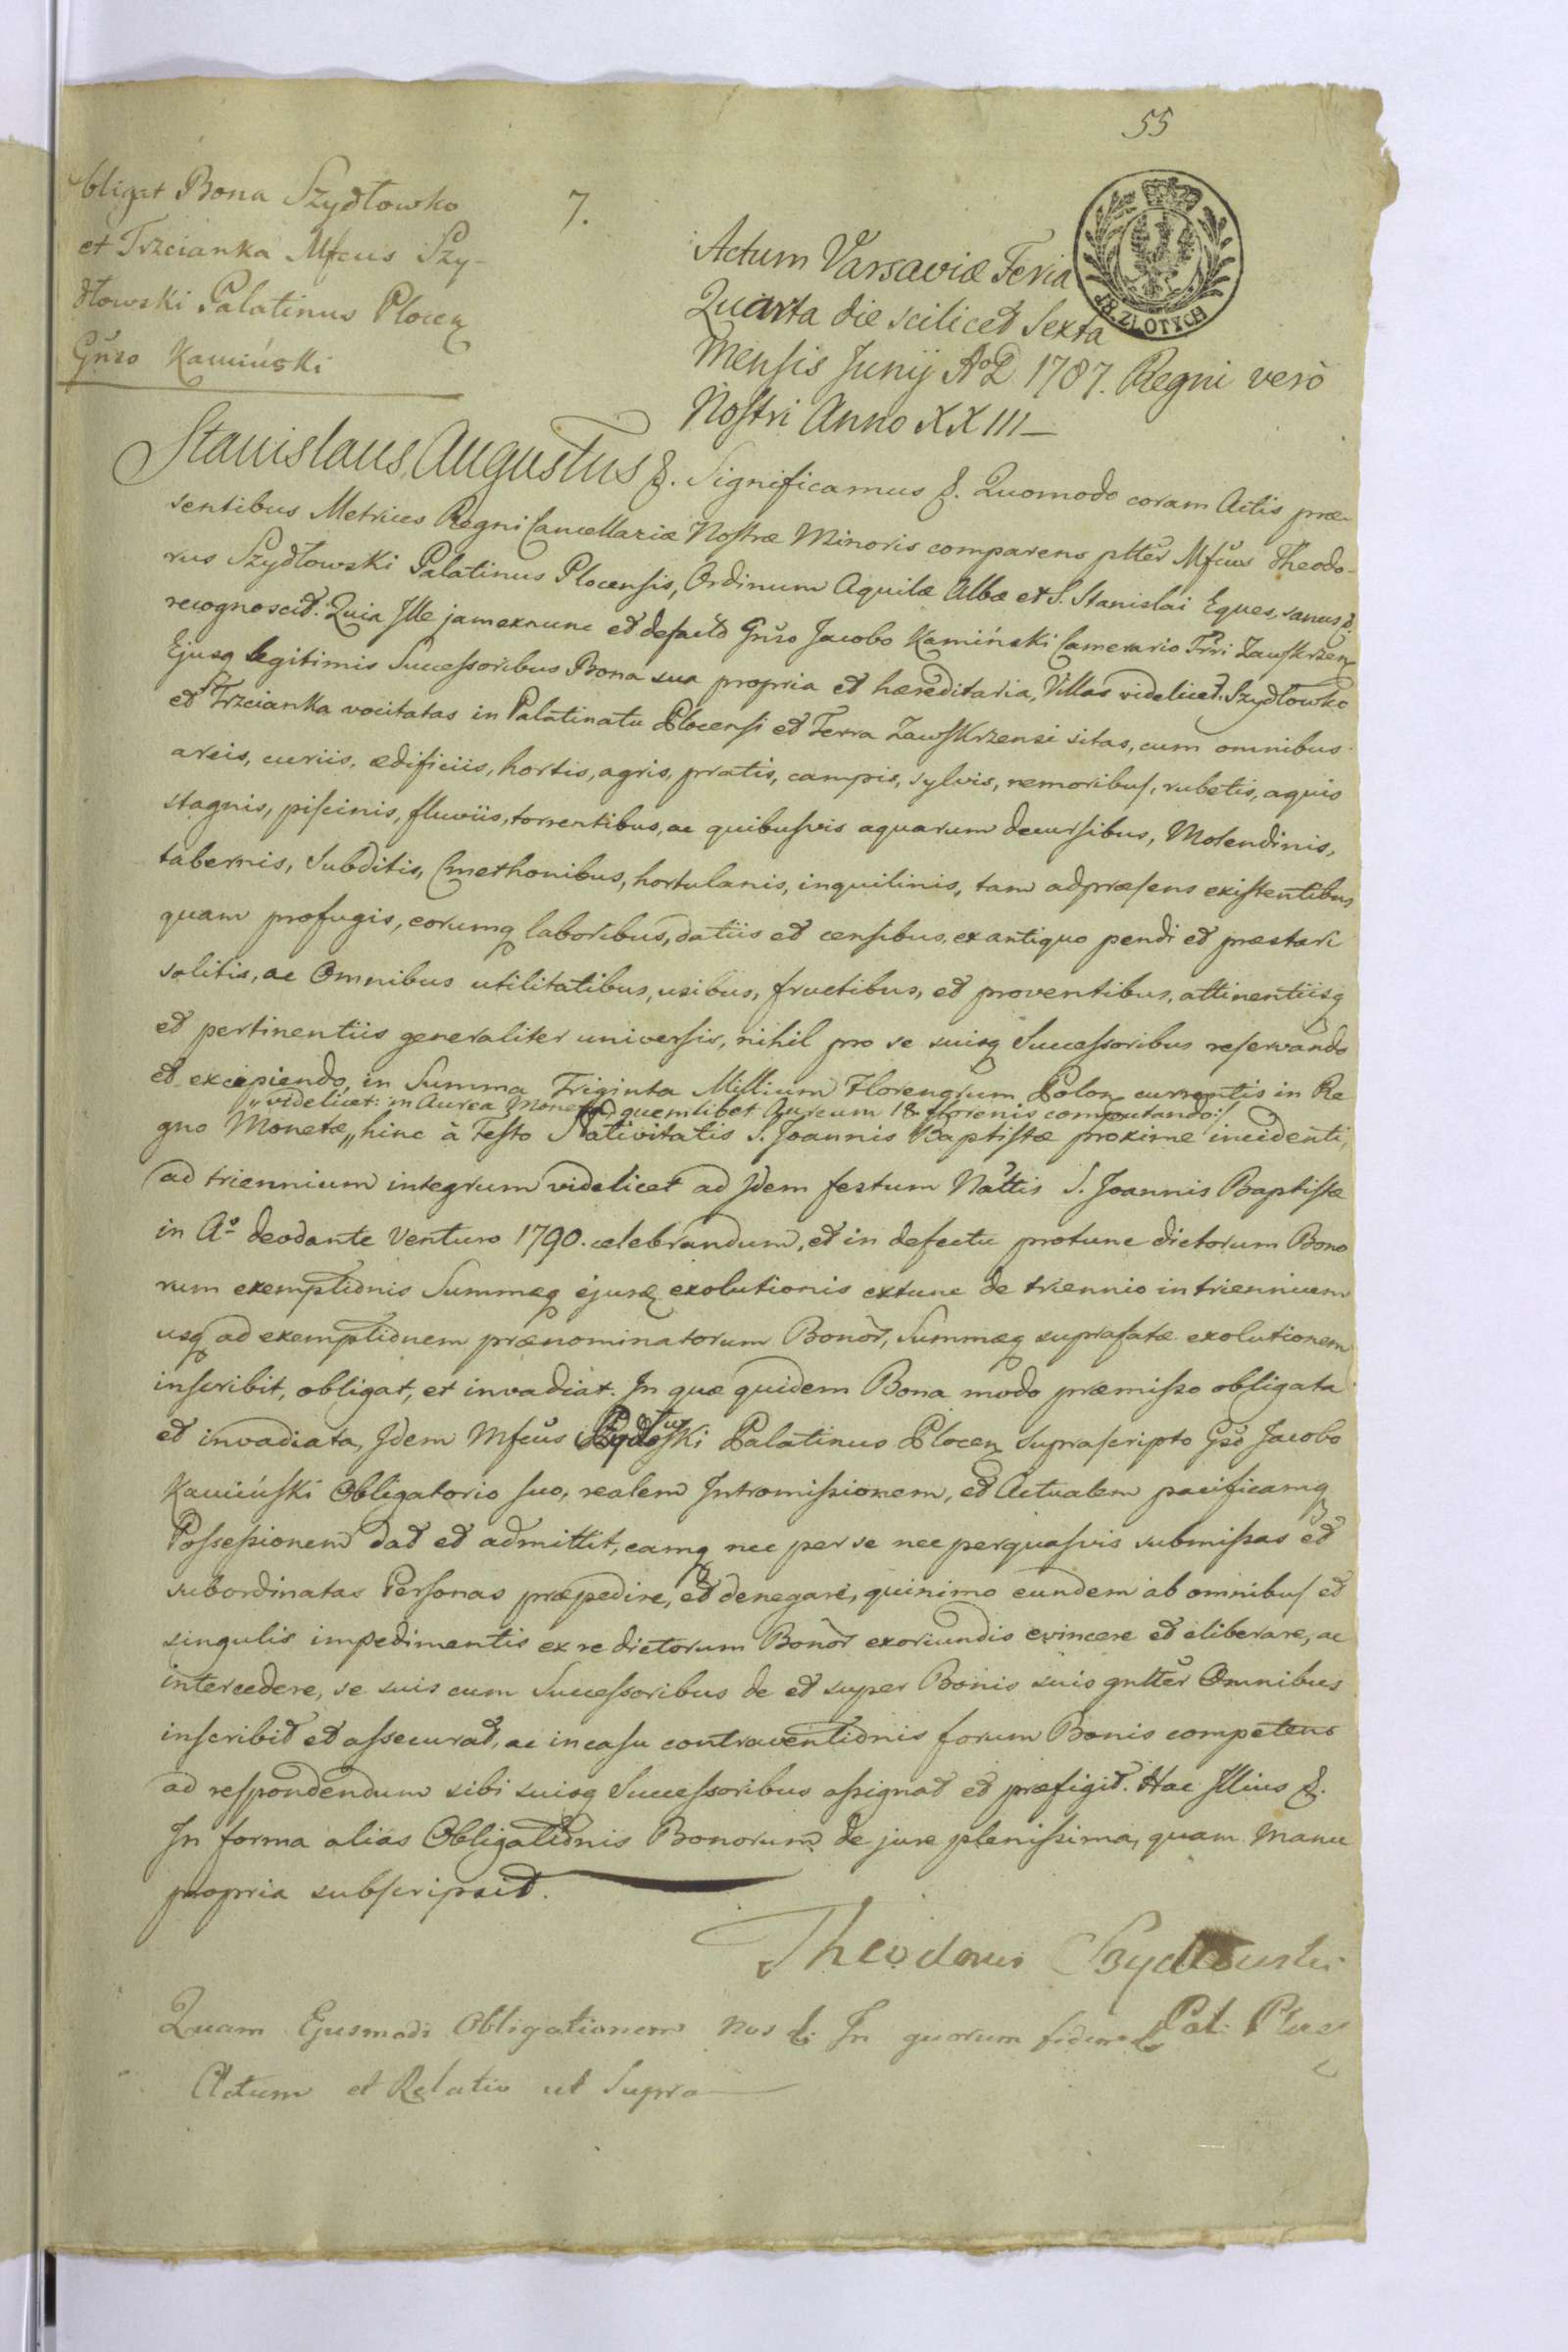 55
Obligat Bona Szydłowko
et Trzcianka Mfcus Szy-
dłowski Palatinus Plocen
Gnso Kamiński
7.
Actum Varsaviæ Feria
Quarta die scilicet Sexta
Mensis Junij AoD 1787. Regni verò
Nostri Anno XXIII
18. ZŁOTYCH
Stanislaus Augustus &. Significamus &. Quomodo coram Actis præ-
sentibus Metrices Regni Cancellariæ Nostræ Minoris comparens pltter Mfcus Theodo-
rus Szydłowski Palatinus Plocensis, Ordinum Aquilæ Albæ et S. Stanislai Eques, sanus &.
recognoscit. Quia Ille jamexnunc et defacto Gnso Jacobo Kamiński Camerario Trri Zawskrzen
Ejusq legitimis Successoribus Bona sua propria et hæreditaria, Villas videlicet Szydłowko
et Trzcianka vocitatas in Palatinatu Plocensi et Terra Zawskrzensi sitas, cum omnibus
areis, curiis, ædificiis, hortis, agris, pratis, campis, sylvis, nemoribus, rubetis, aquis
stagnis, piscinis, fluviis, torrentibus, ac quibusvis aquarum decursibus, Molendinis,
tabernis, Subditis, Cmethonibus, hortulanis, inquilinis, tam adpræsens existentibus
quam profugis, eorumq laboribus, datiis et censibus, ex antiquo pendi et præstari
solitis, ac Omnibus utilitatibus, usibus, fructibus, et proventibus, attinentiisq
et pertinentiis generaliter universis, nihil pro se suisq Successoribus reservando
et excipiendo, in Summa Triginta Millium Florenorum Polon currentis in Re
"videlicet: in Aurea Moneta quemlibet Aureum 18. florenis computando:/
gno Monetæ,, hinc à Festo Nativitatis S. Joannis Baptistæ proxime incidenti,
ad triennium integrum videlicet ad Idem festum Nattis S. Joannis Baptistæ
in Ao deodante Venturo 1790. celebrandum, et in defectu protunc dictorum Bono
rum exemptionis Summæq ejusd exolutionis extunc de triennio in triennium
usq ad exemptionem prænominatorum Bonor, Summæq suprafatæ exolutionem
inscribit, obligat, et invadiat. In quæ quidem Bona modo præmisso obligata
et invadiata, Idem Mfcus Szydłowski Palatinus Plocen suprascripto Gso Jacobo
Kamiński Obligatorio suo, realem Intromissionem, et Actualem pacificamq
Possessionem dat et admittit, eamq nec per se nec perquasvis submissas et
subordinatas Personas præpedire, et denegare, quinimo eundem ab omnibus et
singulis impedimentis ex re dictorum Bonor exoriundis evincere et eliberare, ac
intercedere, se suis cum Successoribus de et super Bonis suis gnltter Omnibus
inscribit et assecurat, ac in casu contraventionis forum Bonis competens
ad respondendum sibi suisq Successoribus assignat et præfigit. Hac Illius &.
In forma alias Obligationis Bonorum de jure plenissima, quam Manu
propria subscripsit.
Theodorus Szydłowski
Pal: Ploc
Quam Ejusmodi Obligationem Nos &. In quorum fidem &
Actum et Relatio ut Supra